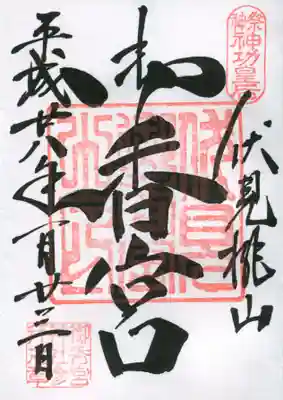 祭神神功皇后
伏見桃山
御香宮
平成廿八年一月廿三日